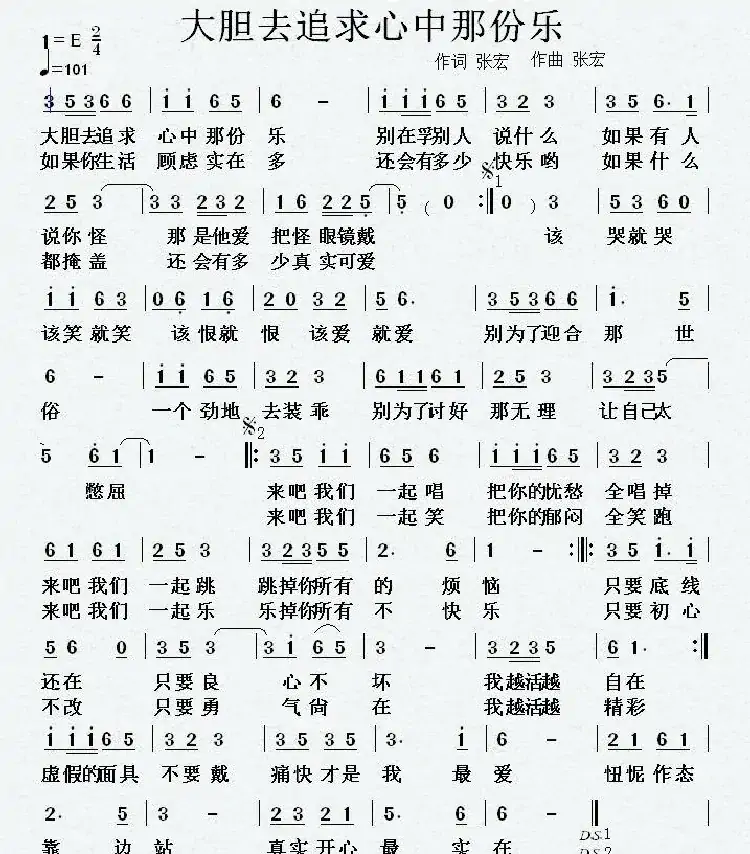 大胆去追求心中那份乐
1=E 2/4
作词 张宏 作曲 张宏
♩=101
3 5 3 6 6 | i i 6 5 | 6 – | i i i 6 5 | 3 2 3 | 3 5 6· 1 |
大胆去追求 心中那份 乐 别在乎别人 说什么 如果有人
如果你生活 顾虑实在 多 还会有多少 快乐哟 如果什么
2 5 3 | 3 3 2 3 2 | 1 6 2 2 5 | 5 ( 0 :‖ 0 ) 3 | 5 3 6 0 |
说你怪 那是他爱 把怪眼镜戴 该 哭就哭
都掩盖 还会有多 少真实可爱
i i 6 3 | 0 6 1 6 | 2 0 3 2 | 5 6· | 3 5 3 6 6 | i· 5 |
该笑就笑 该恨就 恨 该爱 就爱 别为了迎合 那 世
6 – | i i 6 5 | 3 2 3 | 6 1 1 6 1 | 2 5 3 | 3 2 3 5 |
俗 一个劲地 去装乖 别为了讨好 那无理 让自己太
5 6 1 | 1 – ‖: 3 5 i i | 6 5 6 | i i i 6 5 | 3 2 3 |
憋屈 来吧我们 一起唱 把你的忧愁 全唱掉
来吧我们 一起笑 把你的郁闷 全笑跑
6 1 6 1 | 2 5 3 | 3 2 3 5 5 | 2· 6 | 1 – :‖: 3 5 i· i |
来吧我们 一起跳 跳掉你所有 的 烦 恼 只要底线
来吧我们 一起乐 乐掉你所有 不 快 乐 只要初心
5 6 0 | 3 5 3 | 3 i 6 5 | 3 – | 3 2 3 5 | 6 1· :‖
还在 只要良 心不 坏 我越活越 自在
不改 只要勇 气尚 在 我越活越 精彩
i i i 6 5 | 3 2 3 | 3 5 3 5 | 3· i | 6 – | 2 1 6 1 |
虚假的面具 不要戴 痛快才是 我 最 爱 忸怩作态
2· 5 | 3 – | 2 3 2 1 | 5· 6 | 6 – ‖
靠 边 站 真实开心 最 实 在
D.S.1
D.S.2